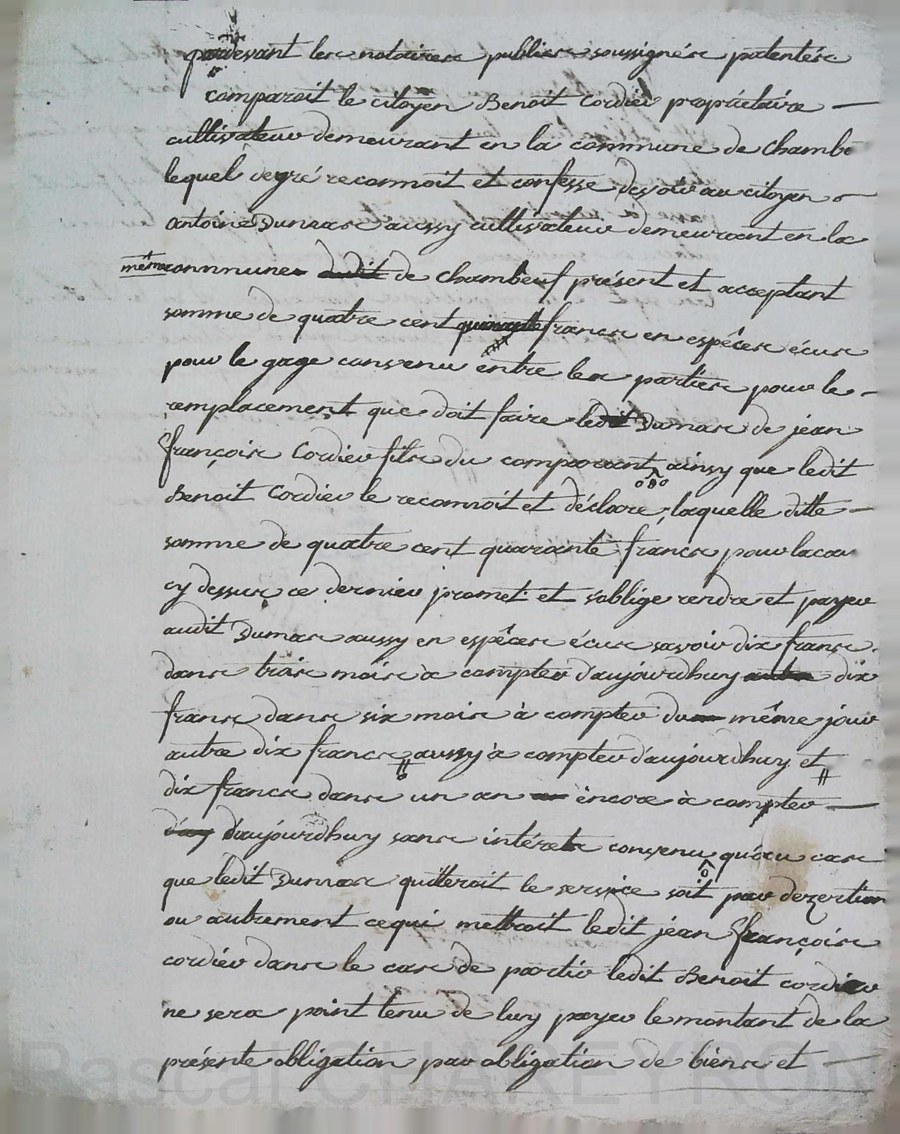 pardevant les notaires publics soussignés patentés
comparoit le citoyen Benoit Cordier propriétaire
cultivateur demeurant en la commune de Chambe
lequel de gré reconnoit et confesse devoir au citoyen
antoine Dumas aussy cultivateur demeurant en la
même commune dudit de chambeuf présent et acceptant
somme de quatre cent quarante francs en espêces écus
pour le gage convenu entre les parties pour le
remplacement que doit faire ledit Dumas de jean
françois Cordier fils du comparant ainsy que ledit
Benoit Cordier le reconnoit et déclare, laquelle ditte
somme de quatre cent quarante francs pour la cau
cy dessus ce dernier promet et s'oblige rendre et payer
audit Dumas aussy en espêces écus savoir dix francs
dans trois mois à compter d'aujourdhuy autre dix
francs dans six mois à compter du même jour
autre dix francs aussy à compter d'aujourdhuy et
dix francs dans un an encore à compter
d'aujourdhuy sans intérets convenu qu'au cas
que ledit Dumas quitteroit le service soit par dezertion
ou autrement ce qui mettroit ledit jean françois
cordier dans le cas de partir ledit Benoit cordier
ne sera point tenu de luy payer le montant de la
présente obligation par obligation de biens et
Pascal CHAREYRON